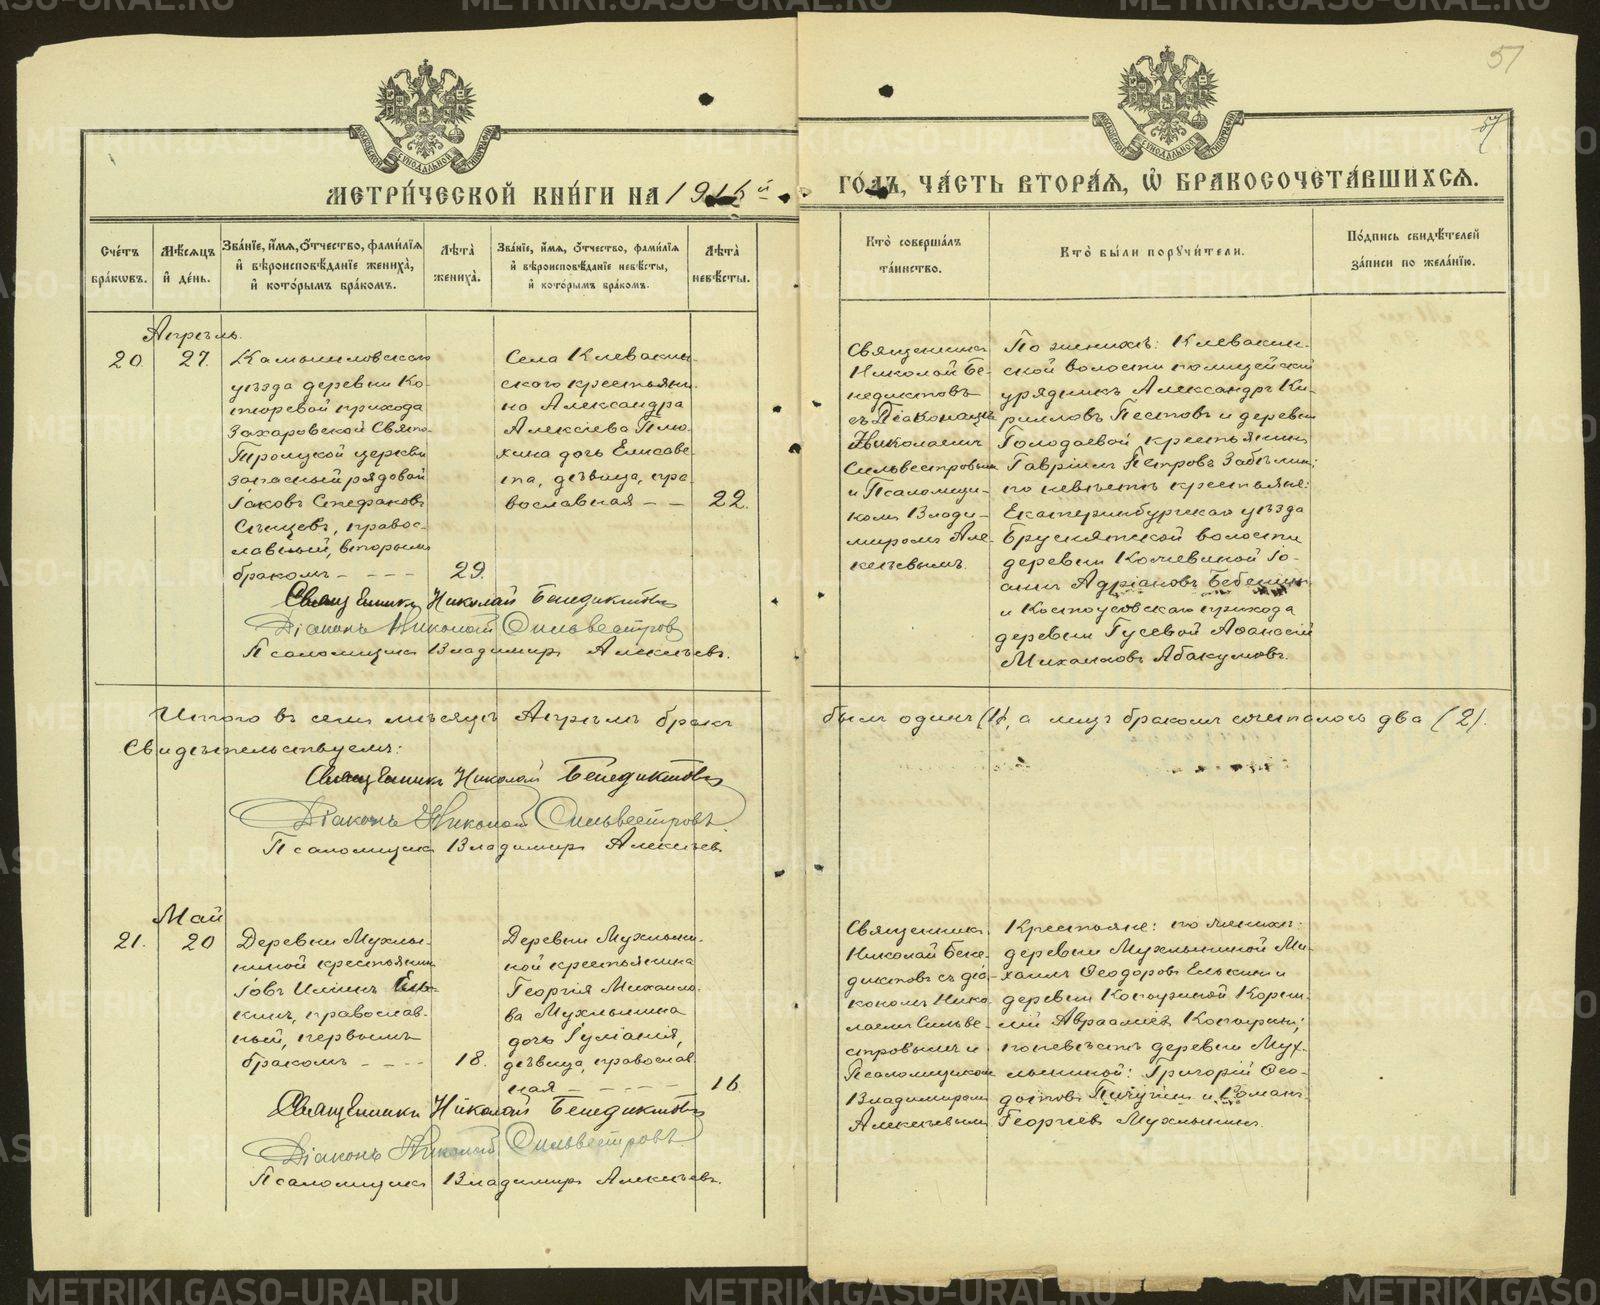 57
57
МЕТРИ́ЧЕСКОЙ КНИ́ГИ НА 1915й
ГО́ДЪ, ЧА́СТЬ ВТОРА́Я, Ѡ БРАКОСОЧЕТА́ВШИХСЯ.
Сче́тъ бра́кѡвъ.
Мѣ́сяцъ и́ де́нь.
Зва́нїе, и́мя, ѻ́тчество, фами́лїя и́ вѣроисповѣ́данїе жениха̀, и́ кото́рымъ бра́комъ.
Лѣта̀ жениха̀.
Зва́нїе, и́мя, ѻ́тчество, фами́лїя и́ вѣроисповѣ́данїе невѣ́сты, и́ кото́рымъ бра́комъ.
Лѣта̀ невѣ́сты.
Кто̀ соверша́лъ та́инство.
Кто̀ бы́ли пору́чители.
По́дпись свидѣ́телей за́писи по жела́нїю.
Апрѣль.
20
27.
Камышловскаго
уѣзда деревни Ко-
прихода
Захаровской Свято-
Троицкой церкви
запасный рядовой
Іаковъ Стефановъ
православ-
ный, вторымъ
бракомъ - - - -
29.
Села Клевакин-
скаго крестьяни-
на Александра
Алексіева Плю-
хина дочь Елисаве-
та, дѣвица, пра-
вославная - -
22.
Священникъ
Николай Бе-
недиктовъ
съ Діакономъ
Николаемъ
Сильвестровымъ
и Псаломщи-
комъ Влади-
миромъ Але-
ксѣевымъ.
По женихѣ: Клевакин-
ской волости полицейскій
урядникъ Александръ Ки-
рилловъ Пестовъ и деревни
Голодаевой крестьянинъ
Гавріилъ Петровъ Забѣлинъ;
по невѣстѣ крестьяне:
Екатеринбургскаго уѣзда
Бруснятской волости
деревни Кочневиной Іо-
аннъ Адріановъ Бебенинъ
и Костоусовскаго прихода
деревни Гусевой Аѳанасій
Михаиловъ Абакумовъ.
Священникъ Николай Бенедиктовъ
Діаконъ Николай Сильвестровъ
Псаломщикъ Владимиръ Алексѣевъ.
Итого въ семъ мѣсяцѣ Апрѣлѣ бракъ
былъ одинъ (1), а лицъ бракомъ сочеталось два (2).
Свидѣтельствуемъ:
Священникъ Николай Бенедиктовъ
Діаконъ Николай Сильвестровъ.
Псаломщикъ Владимиръ Алексѣевъ.
Май
21.
20
Деревни Мухлы-
ниной крестьянинъ
Іовъ Ель-
кинъ, православ-
ный, первымъ
бракомъ - - - -
18.
Деревни Мухлыни-
ной крестьянина
Георгія Михаило-
ва Мухлынина
дочь Іуліанія,
дѣвица, православ-
ная - - - - -
16
Священникъ
Николай Бене-
диктовъ съ діа-
кономъ Нико-
лаемъ Сильве-
стровымъ и
Псаломщикомъ
Владимиромъ
Алексѣевымъ
Крестьяне: по женихѣ:
деревни Мухлыниной Ми-
хаилъ Ѳеодоровъ Елькинъ и
деревни Копыриной Корни-
лій Аврааміевъ Копыринъ;
по невѣстѣ деревни Мух-
лыниной: Григорій Ѳео-
дотовъ Пичугинъ и Романъ
Георгіевъ Мухлынинъ.
Священникъ Николай Бенедиктовъ
Діаконъ Николай Сильвестровъ.
Псаломщикъ Владимиръ Алексѣевъ.
METRIKI.GASO-URAL.RU